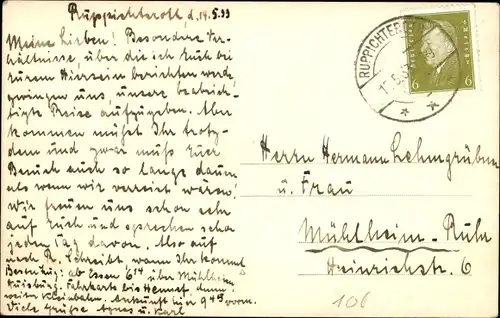 Ruppichteroth, d. 14.5.33
Meine Lieben! Besondere Ver-
hältnisse, über die ich Euch bei
eurem Hiersein berichten werde
zwingen uns, unsere beabsich-
tigte Reise aufzugeben. Aber
kommen müsst Ihr trotz-
dem und zwar muss Euer
Besuch auch so lange dauern
als wenn wir verreist wären!
Wir freuen uns schon sehr
auf Euch und sprechen schon
jeden Tag davon. Also auf
nach R. Schreibt, wann Ihr kommt
ab Essen 6 14 über Mühlheim
Duisburg. Fahrkarte bis Hennef dann
weiter Kleinbahn. Ankunft hier 9 45 vorm.
Viele Grüße Agnes u. Karl
RUPPICHTER
6 6
Herrn Hermann Lehmgrüben
u. Frau
Mühlheim-Ruhr
Heinrichstr. 6
106